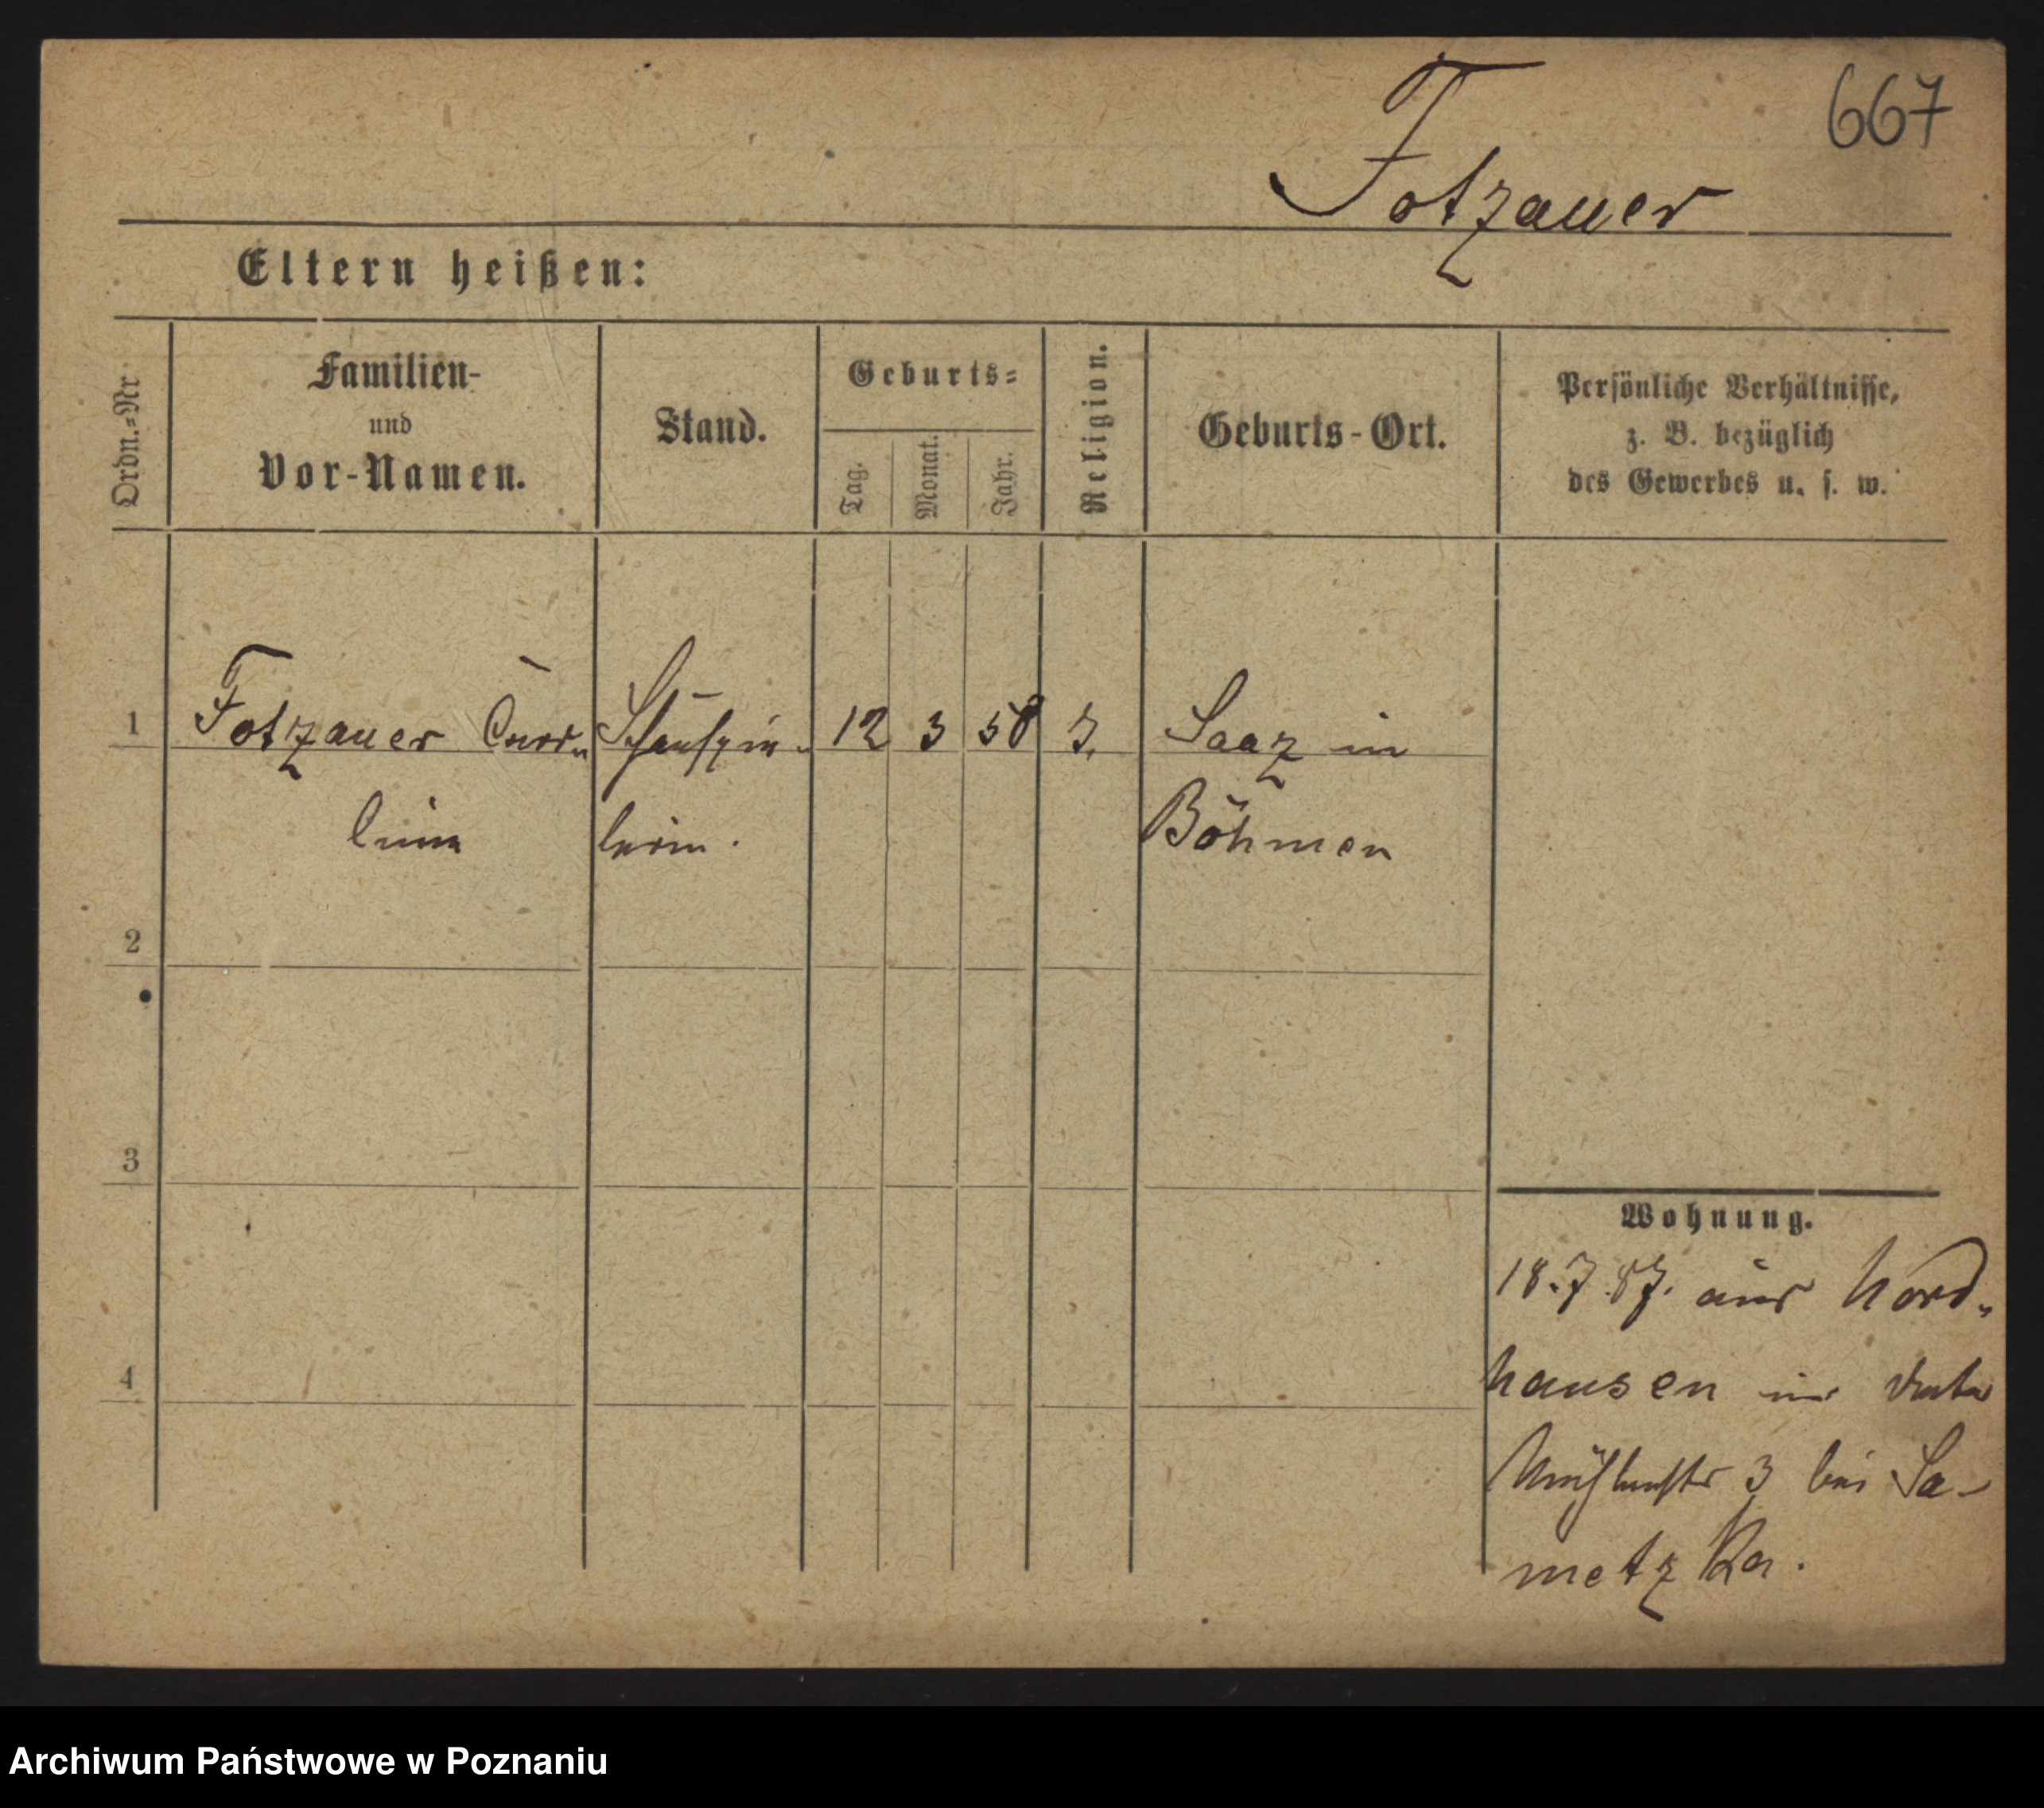 667
Fotzauer
Eltern heißen:
Ordn.-Nr
Familien-
und
Vor-Namen.
Stand.
Geburts-
Tag.
Monat.
Jahr.
Religion.
Geburts-Ort.
Persönliche Verhältnisse,
z. B. bezüglich
des Gewerbes u. s. w.
1 Fotzauer Schauspie- 12 3 58 J. Saaz in
lerin. Böhmen
2
3
4
Wohnung.
18.7.87. aus Nord-
hausen
Mühlenstr 3 bei Sa-
metzka.
Archiwum Państwowe w Poznaniu